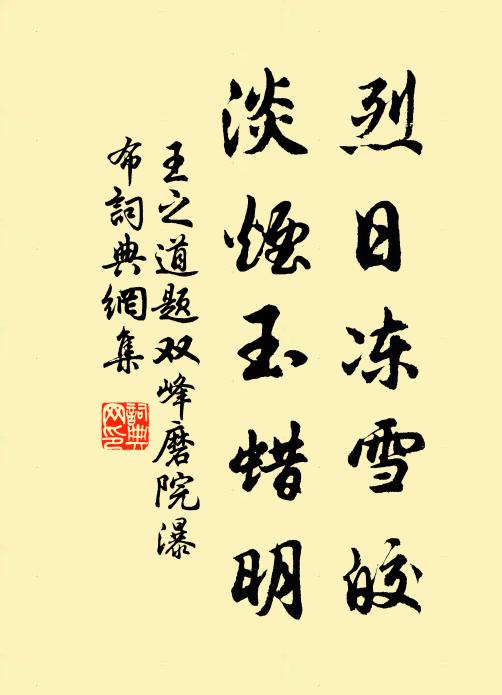 烈日冻雪皎
淡煙玉蜡明
王之道题双峰磨院瀑
布詞典網集
詞典
网印